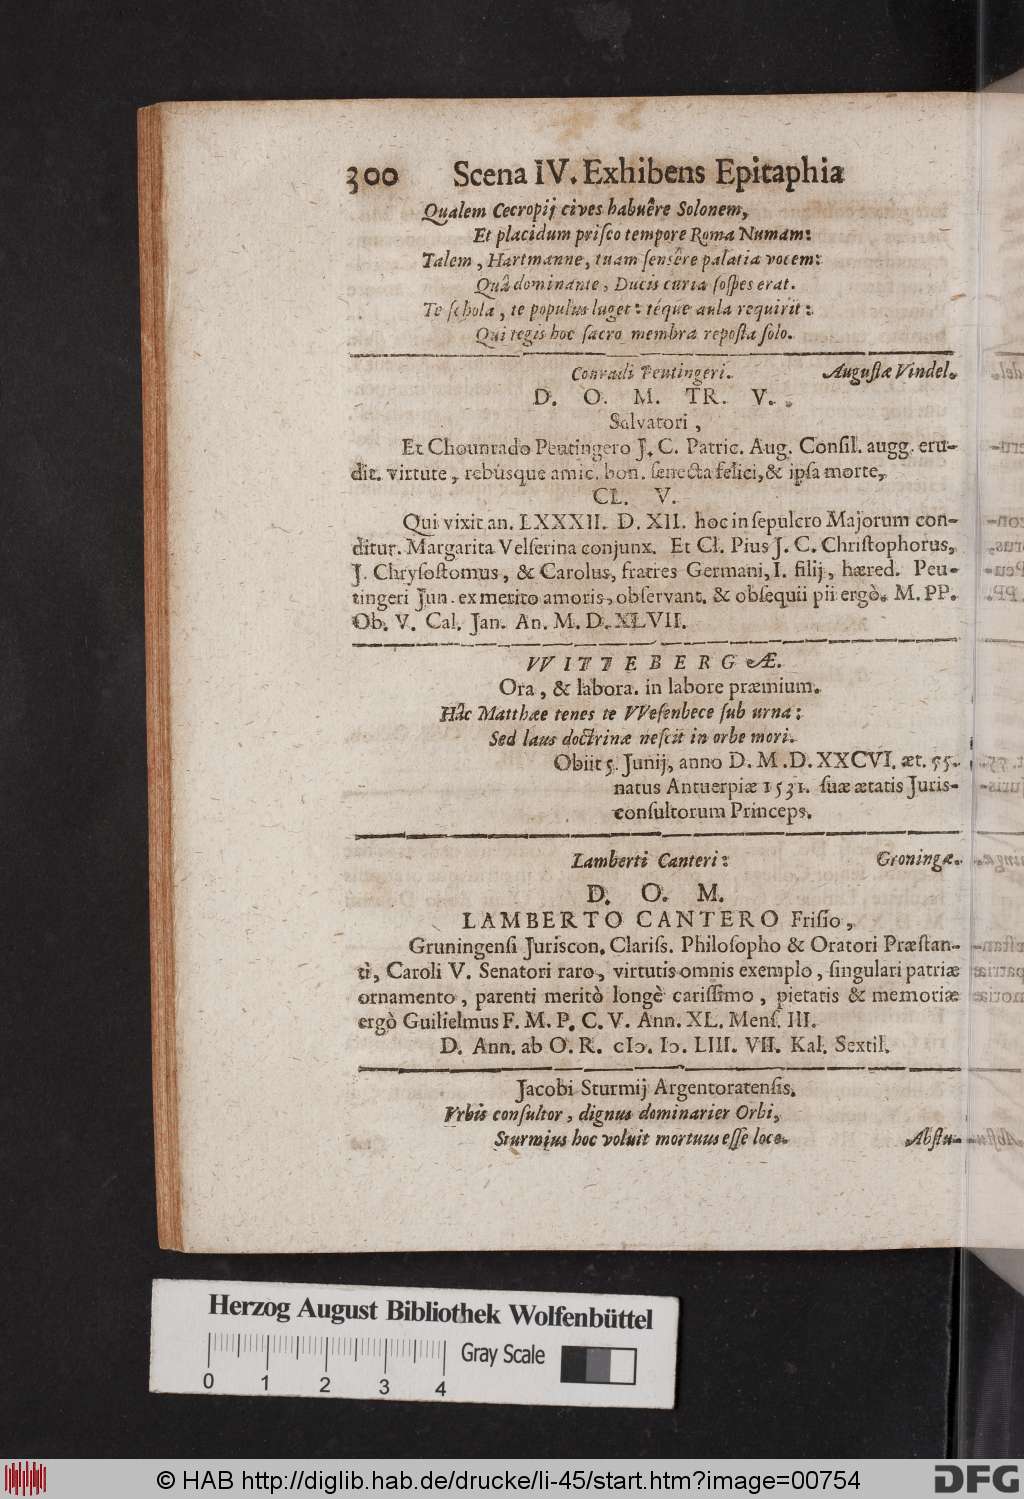 300 Scena IV. Exhibens Epitaphia
Qualem Cecropij cives habuêre Solonem,
Et placidum priſco tempore Roma Numam:
Talem, Hartmanne, tuam ſensêre palatia vocem:
Quâ dominante, Ducis curia ſoſpes erat.
Te ſchola, te populus luget: téque aula requirit:
Qui tegis hoc ſacro membra repoſta ſolo.
Conradi Peutingeri. Auguſtæ Vindel.
D. O. M. TR. V.
Salvatori,
Et Chounrado Peutingero J. C. Patric. Aug. Conſil. augg. eru-
dit. virtute, rebúsque amic. bon. ſenecta felici, & ipſa morte,
CL. V.
Qui vixit an. LXXXII. D. XII. hoc in ſepulcro Majorum con-
ditur. Margarita Velſerina conjunx. Et Cl. Pius J. C. Chriſtophorus,
J. Chryſoſtomus, & Carolus, fratres Germani, I. filij, hæred. Peu-
tingeri Jun. ex merito amoris, obſervant. & obſequii pii ergò. M. PP.
Ob. V. Cal. Jan. An. M. D. XLVII.
VVITTEBERGÆ.
Ora, & labora. in labore præmium.
Hâc Matthæe tenes te VVeſenbece ſub urna:
Sed laus doctrinæ neſcit in orbe mori.
Obiit 5. Junij, anno D. M. D. XXCVI. æt. 55.
natus Antuerpiæ 1531. ſuæ ætatis Juris-
conſultorum Princeps.
Lamberti Canteri: Groningæ.
D. O. M.
LAMBERTO CANTERO Friſio,
Gruningenſi Juriscon. Clariſs. Philoſopho & Oratori Præſtan-
ti, Caroli V. Senatori raro, virtutis omnis exemplo, ſingulari patriæ
ornamento, parenti meritò longè cariſſimo, pietatis & memoriæ
ergò Guilielmus F. M. P. C. V. Ann. XL. Menſ. III.
D. Ann. ab O. R. cIↄ. Iↄ. LIII. VII. Kal. Sextil.
Jacobi Sturmij Argentoratenſis.
Vrbis conſultor, dignus dominarier Orbi,
Sturmius hoc voluit mortuus eſſe loco.
Abſtu-
Herzog August Bibliothek Wolfenbüttel
Gray Scale
0 1 2 3 4
© HAB http://diglib.hab.de/drucke/li-45/start.htm?image=00754
DFG